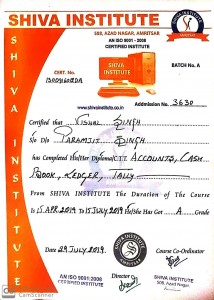 SHIVA INSTITUTE
588, AZAD NAGAR, AMRITSAR
AN ISO 9001 - 2008
CERTIFIED INSTITUTE
CERT. NO.
BATCH No. A
www.shivainstitute.co.in
Addmission No. 3630
Certified that Vishal Singh
S/o D/o Paramjit Singh
has Completed His/Her Diploma/CTT Accounts, Cash
Book, Ledger, Tally
From SHIVA INSTITUTE The Duration of the Course
15 APR 2019 To 15 JULY 2019 He/She Has Got A Grade
Date 29 July 2019
Course Co-Ordinator
SHIVA INSTITUTE
AN ISO 9001:2008
CERTIFIED INSTITUTE
Director
SHIVA INSTITUTE
588, Azad Nagar
SHIVA INSTITUTE
CS CamScanner